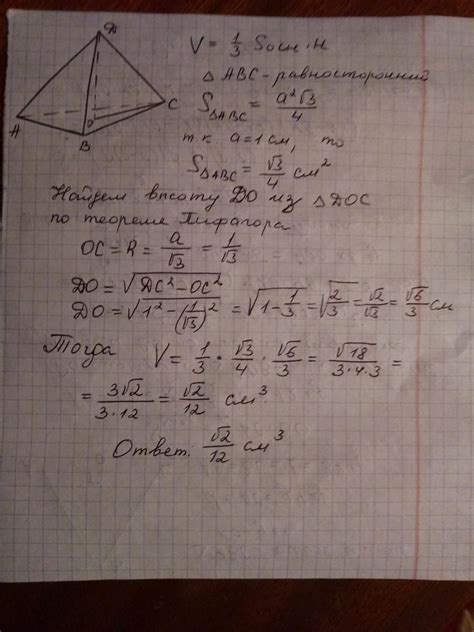 D
A
B
C
O
V = 1/3 Sосн · H
△ ABC - равносторонний
S△ABC = a²√3/4
т.к a=1 см, то
S△ABC = √3/4 см²
Найдем высоту DO из △DOC
по теореме Пифагора
OC = R = a/√3 = 1/√3
DO = √(DC² - OC²)
DO = √(1² - (1/√3)²) = √(1 - 1/3) = √(2/3) = √2/√3 = √6/3 см
Тогда V = 1/3 · √3/4 · √6/3 = √18/(3·4·3) =
= 3√2/(3·12) = √2/12 см³
Ответ. √2/12 см³